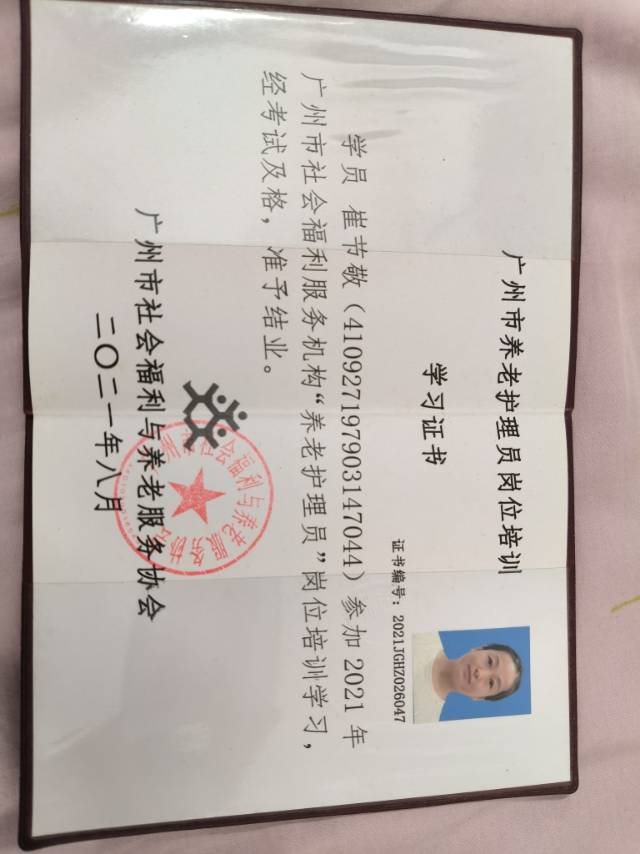 广州市养老护理员岗位培训
学习证书
证书编号：2021JGHZ026047
学员 崔节敬（410927197903147044）参加 2021 年
广州市社会福利服务机构“养老护理员”岗位培训学习，
经考试及格，准予结业。
广州市社会福利与养老服务协会
二〇二一年八月